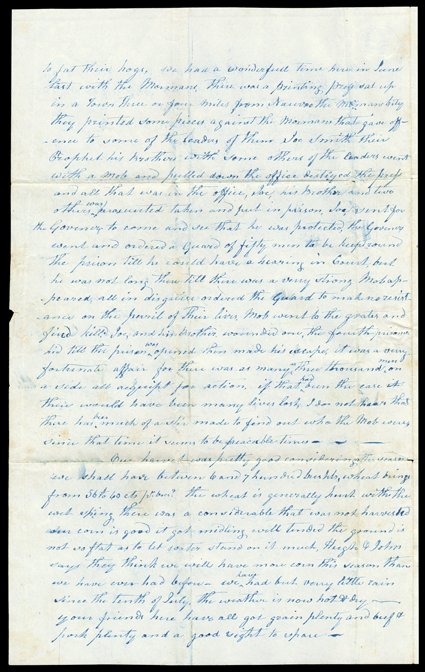 to fat their hogs, we had a wonderfull time here in June
last with the Mormans there was a printing press set up
in a Town three or four miles from Nauvoo the Mormans City
they printed some pieces against the Mormans that gave off-
ence to some of the leaders of them Joe Smith their
Prophet his brother with some others of the leaders went
with a Mob and pulled down the office destroyed the press
and all that was in the office, Joe, his brother and two
others was prosecuted taken and put in prison, Joe sent for
the Governor to come and see that he was protected, the Governor
went and ordered a Guard of fifty men to be keep round
the prison till he could have a hearing in Court but
he was not long there till there was a very strong Mob ap-
peared, all in disguise ordered the Guard to make no resist-
ance on the peril of their lives Mob went to the grates and
fired kill'd Joe, and his brother wounded one, the fourth
hid till the prison was opened then made his escape, it was a very
fortunate affair for there was as many as three thousand men on
a side all for action if that had been the case it
there would have been many lives lost, I do not hear that
there has been much of a stir made to find out who the Mob were
since that time it seems to be peacable times —
Our harvest was pretty good considering the season
we shall have between 6 and 7 hundred bushels, wheat brings
from 56 to 60 cts pr bus. the wheat is generally hurt with the
wet spring there was a considerable that was not harvested
our corn is good it got midling well tended the ground is
not so flat as to let water stand on it much, Hugh & John
says they think we will have more corn this season than
we have ever had before — we have had but verry little rain
since the tenth of July, the weather is now hot & dry —
your friends here have all got grain plenty and beef &
pork plenty and a good right to spare —